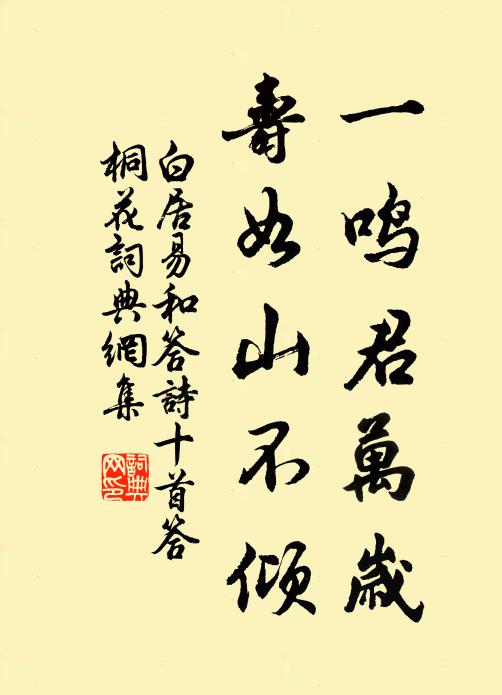 一鸣君萬歲
壽如山不傾
白居易和答詩十首答
桐花詞典網集
詞典
网印